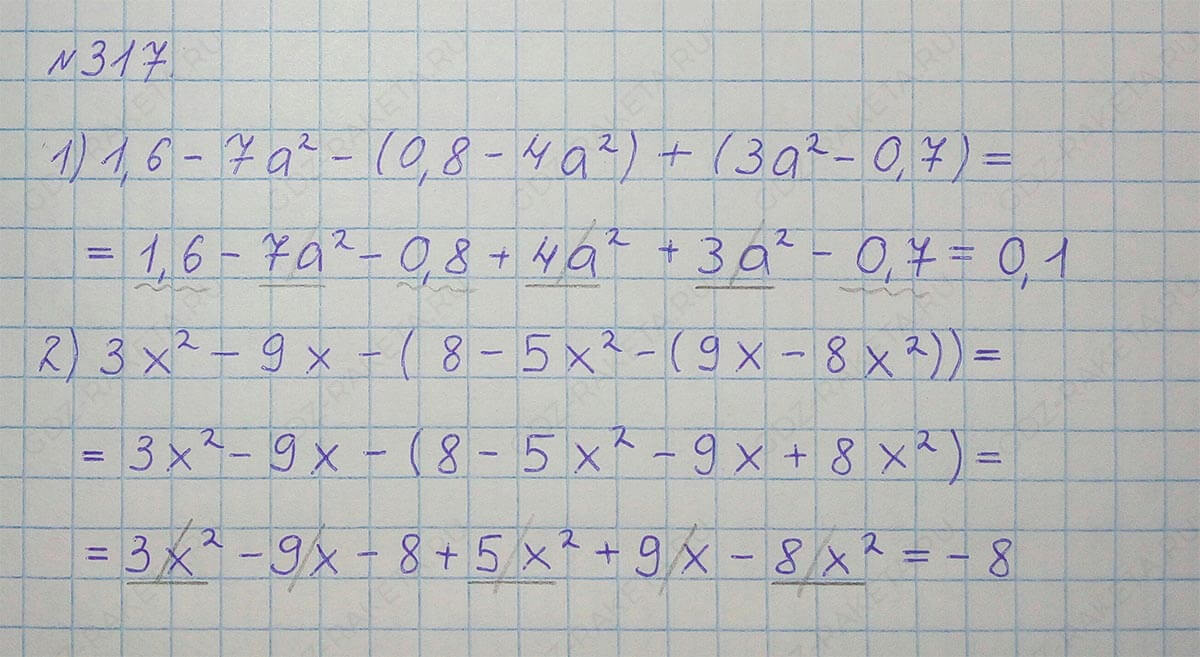 №317.
1) 1,6 - 7a² - (0,8 - 4a²) + (3a² - 0,7) =
= 1,6 - 7a² - 0,8 + 4a² + 3a² - 0,7 = 0,1
2) 3x² - 9x - (8 - 5x² - (9x - 8x²)) =
= 3x² - 9x - (8 - 5x² - 9x + 8x²) =
= 3x² - 9x - 8 + 5x² + 9x - 8x² = -8